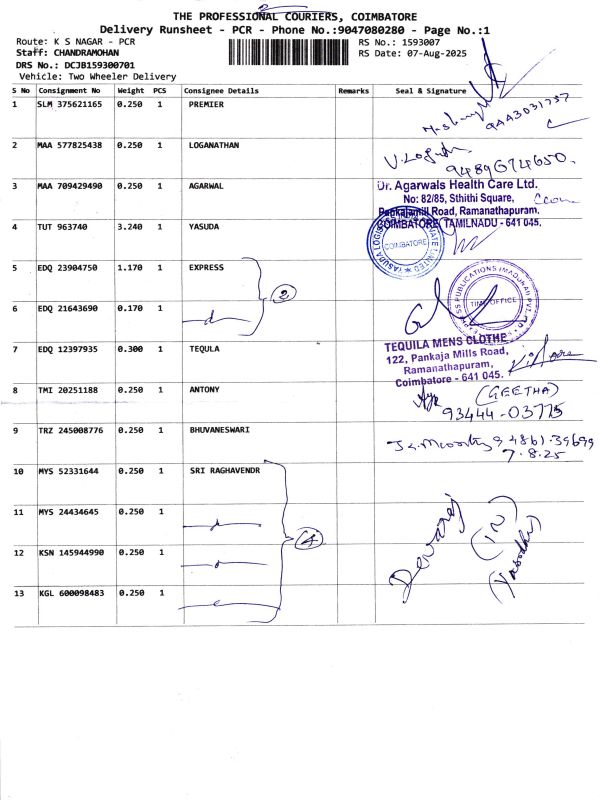 THE PROFESSIONAL COURIERS, COIMBATORE
Delivery Runsheet - PCR - Phone No.:9047080280 - Page No.:1
Route: K S NAGAR - PCR
RS No.: 1593007
Staff: CHANDRAMOHAN
RS Date: 07-Aug-2025
DRS No.: DCJB159300701
Vehicle: Two Wheeler Delivery
S No Consignment No Weight PCS Consignee Details Remarks Seal & Signature
1 SLM 375621165 0.250 1 PREMIER
2 MAA 577825438 0.250 1 LOGANATHAN
V. Logu
9489674650.
3 MAA 709429490 0.250 1 AGARWAL
Dr. Agarwals Health Care Ltd.
No: 82/85, Sthithi Square,
Pankajamill Road, Ramanathapuram,
COIMBATORE, TAMILNADU - 641 045.
4 TUT 963740 3.240 1 YASUDA
COIMBATORE
5 EDQ 23904750 1.170 1 EXPRESS
2
TIME OFFICE
6 EDQ 21643690 0.170 1
7 EDQ 12397935 0.300 1 TEQULA
TEQUILA MENS CLOTHE
122, Pankaja Mills Road,
Ramanathapuram,
Coimbatore - 641 045.
8 TMI 20251188 0.250 1 ANTONY
(GEETHA)
93444-03775
9 TRZ 245008776 0.250 1 BHUVANESWARI
7.8.25
10 MYS 52331644 0.250 1 SRI RAGHAVENDR
11 MYS 24434645 0.250 1
4
Devaraj
12 KSN 145944990 0.250 1
13 KGL 600098483 0.250 1